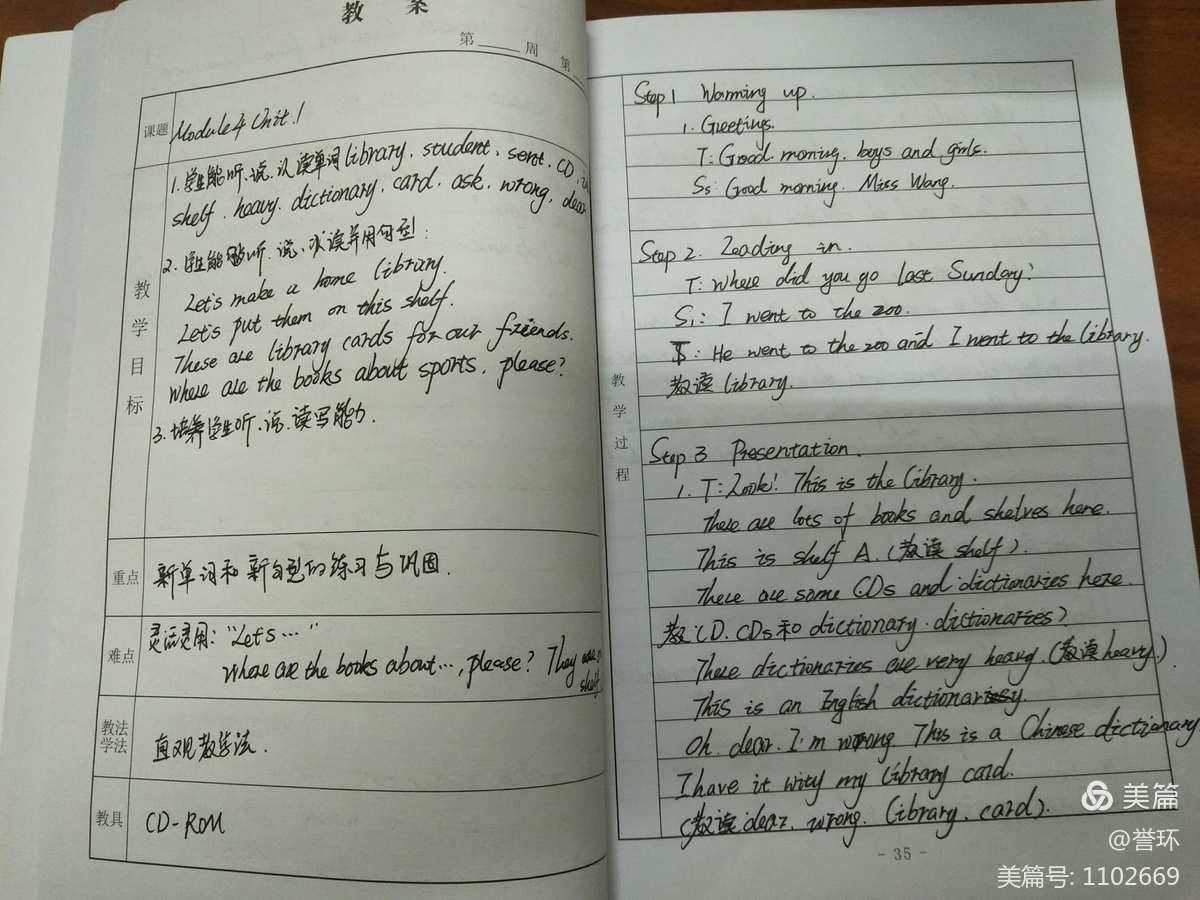 教 案
第 周 第
课题
Module 4 Unit 1
教学目标
1. 学生能听、说、认读单词 library、student、sent、CD、
shelf、heavy、dictionary、card、ask、wrong、dear
2. 学生能够听、说、认读并用句型:
Let's make a home library.
Let's put them on this shelf.
These are library cards for our friends.
Where are the books about sports, please?
3. 培养学生听、说、读写能力.
重点
新单词和新句型的练习与巩固.
难点
灵活灵用: "Let's ..."
Where are the books about ..., please? They
shelf
教法
学法
直观教学法.
教具
CD-ROM
教学过程
Step 1 Warming up.
1. Greetings.
T: Good morning, boys and girls.
Ss: Good morning. Miss Wang.
Step 2. Leading in.
T: Where did you go last Sunday?
S1: I went to the zoo.
T: He went to the zoo and I went to the library.
教读 library.
Step 3 Presentation.
1. T: Look! This is the library.
There are lots of books and shelves here.
This is shelf A. (教读 shelf).
There are some CDs and dictionaries here.
教 CD. CDs 和 dictionary. dictionaries)
These dictionaries are very heavy. (教读 heavy.)
This is an English dictionary.
Oh. dear. I'm wrong This is a Chinese dictionary.
I have it wity my library card.
(教读 dear. wrong. library. card).
- 35 -
美篇
@誉环
美篇号: 1102669